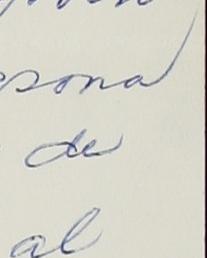 sona
de
al